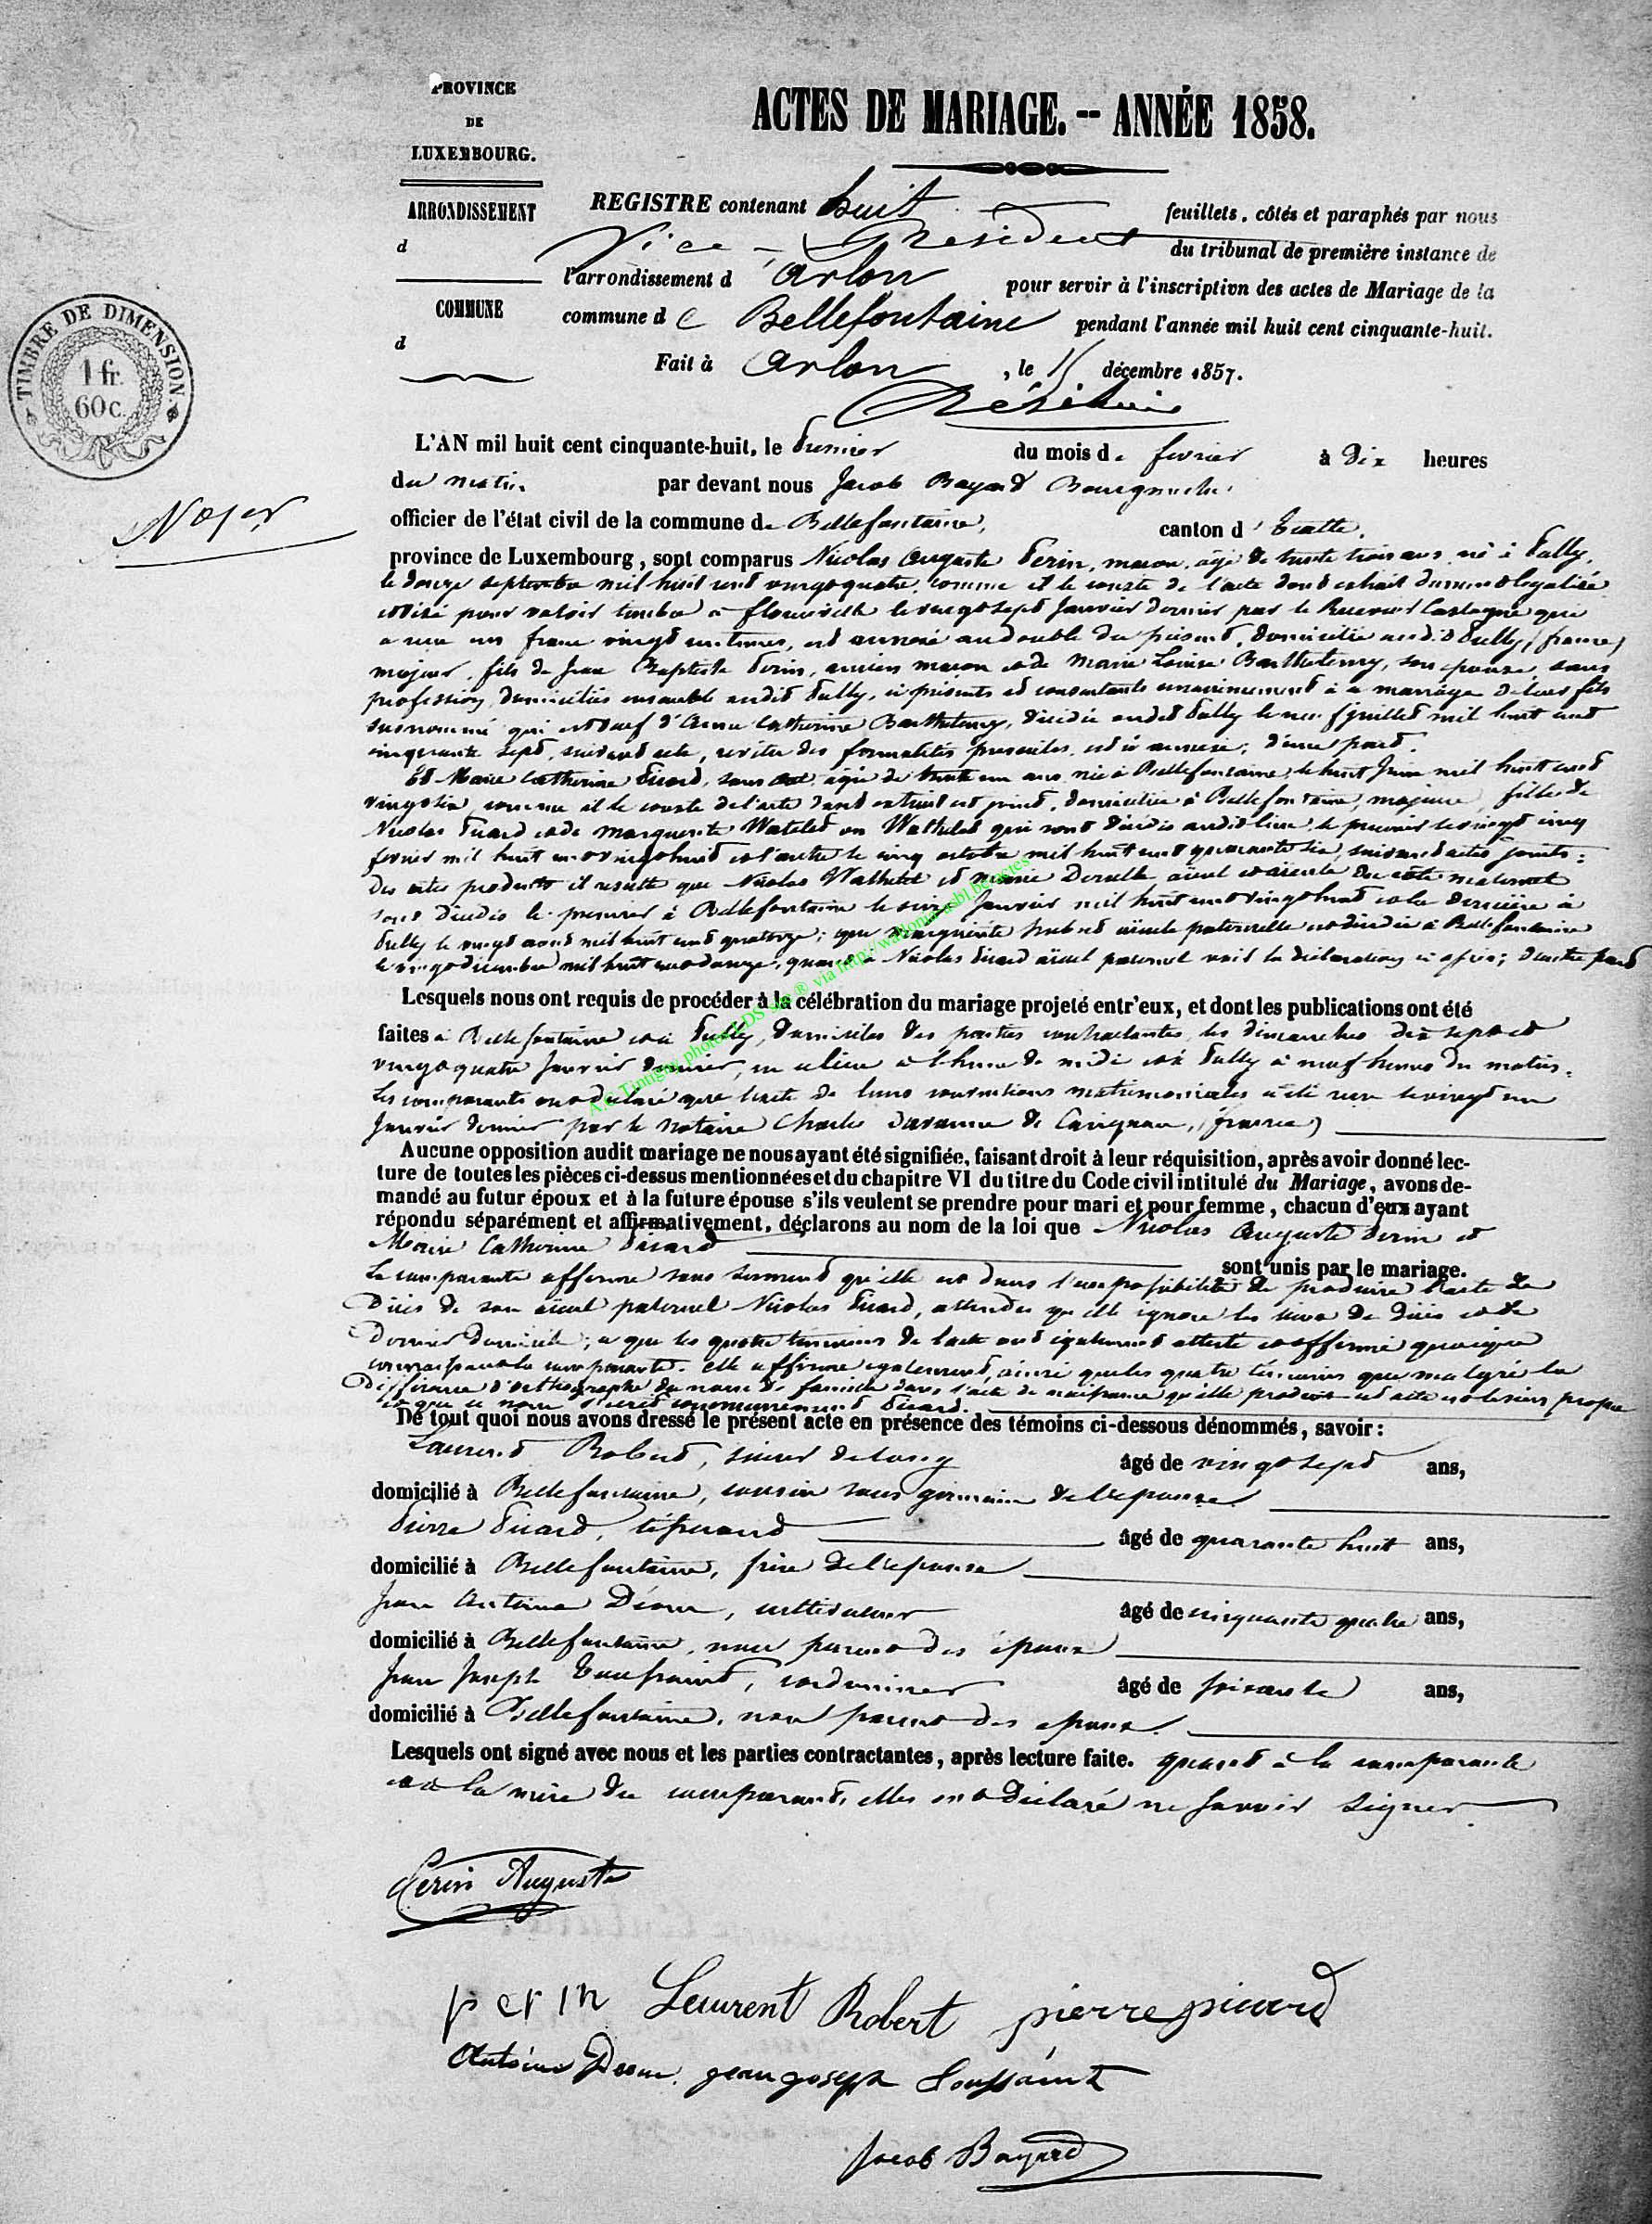 PROVINCE
DE
LUXEMBOURG.
ACTES DE MARIAGE. -- ANNÉE 1858.
ARRONDISSEMENT
d
COMMUNE
d
REGISTRE contenant huit feuillets, côtés et paraphés par nous
Vice-Président du tribunal de première instance de
l'arrondissement d'Arlon pour servir à l'inscription des actes de Mariage de la
commune de Bellefontaine pendant l'année mil huit cent cinquante-huit.
Fait à Arlon, le 15 décembre 1857.
TIMBRE DE DIMENSION
1 fr.
60 c.
L'AN mil huit cent cinquante-huit, le premier du mois de fevrier à dix heures
du matin par devant nous Jacob Bayard Bourgmestre
officier de l'état civil de la commune de Bellefontaine, canton d'Etalle,
province de Luxembourg, sont comparus Nicolas Auguste Perin, maçon, agé de trente trois ans, né à Pully,
le douze septembre mil huit cent vingt quatre, comme il le conste de l'acte dont extrait
visé pour valoir timbre à Florenville le vingt sept Janvier dernier par le Receveur que
a reçu un franc vingt centimes, est annexé au double du présent, domicilié audit Pully, (france)
majeur, fils de Jean Baptiste Perin, ancien maçon et de Marie Louise Barthelemy, son épouse, sans
profession, domiciliés ensemble audit Pully, ci présents et consentants au mariage de leur fils
susnommé qui est veuf d'Anne Catherine Barthelemy, décédée audit Pully le neuf juillet mil huit cent
cinquante sept, suivant acte, revêtu des formalités prescrites, est ci annexé; d'une part.
Et Marie Catherine Picard, sans état, agée de trente un ans, née à Bellefontaine, le huit Juin mil huit cent
vingt six, comme il le conste de l'acte dont extrait est joint, domiciliée à Bellefontaine, majeure, fille de
Nicolas Picard et de Marguerite Watelet ou Wathelet qui sont décédés audit lieu, le premier le vingt cinq
fevrier mil huit cent vingt huit et l'autre le cinq octobre mil huit cent quarante six, suivant actes joints:
Des actes produits il resulte que Nicolas Wathelet et Marie aïeul et aïeule du côté maternel
sont décédés le premier à Bellefontaine le Janvier mil huit cent vingt huit et la dernière à
Pully le vingt août mil huit cent quatorze; que Marguerite aïeule paternelle est décédée à Bellefontaine
le vingt décembre mil huit cent douze, quant à Nicolas Picard aïeul paternel voir la déclaration ci après; d'autre part
Lesquels nous ont requis de procéder à la célébration du mariage projeté entr'eux, et dont les publications ont été
faites à Bellefontaine et à Pully, domiciles des parties contractantes, les dimanches dix sept et
vingt quatre Janvier dernier, à l'heure de midi et à Pully à neuf heures du matin.
Les comparants ont déclaré que l'acte de leurs conventions matrimoniales a été reçu le vingt un
Janvier dernier par le notaire Charles de Carignan, (france)
Aucune opposition audit mariage ne nous ayant été signifiée, faisant droit à leur réquisition, après avoir donné lec-
ture de toutes les pièces ci-dessus mentionnées et du chapitre VI du titre du Code civil intitulé du Mariage, avons de-
mandé au futur époux et à la future épouse s'ils veulent se prendre pour mari et pour femme, chacun d'eux ayant
répondu séparément et affirmativement, déclarons au nom de la loi que Nicolas Auguste Perin et
Marie Catherine Picard sont unis par le mariage.
La comparante affirme sous serment qu'elle est dans l'impossibilité de produire l'acte de
décès de son aïeul paternel Nicolas Picard, attendu qu'elle ignore le lieu de décès et de
dernier domicile; et que les quatre témoins de l'acte ont également attesté et affirmé
la comparante. elle affirme egalement, ainsi que les quatre témoins que malgré la
différence d'orthographe du nom de famille dans l'acte de naissance qu'elle produit cet acte est le sien propre
et que ce nom s'écrit communément Picard.
De tout quoi nous avons dressé le présent acte en présence des témoins ci-dessous dénommés, savoir:
Laurent Robert, scieur de long âgé de vingt sept ans,
domicilié à Bellefontaine, cousin sous germain de l'épouse
Pierre Picard, tisserand âgé de quarante huit ans,
domicilié à Bellefontaine, frère de l'épouse
Jean Antoine, cultivateur âgé de cinquante quatre ans,
domicilié à Bellefontaine, non parent des époux
Jean Joseph Toussaint, cordonnier âgé de soixante ans,
domicilié à Bellefontaine, non parent des époux.
Lesquels ont signé avec nous et les parties contractantes, après lecture faite. quant à la comparante
et à la mère du comparant, elles ont déclaré ne savoir signer.
Perin Auguste
perin Laurent Robert pierre picard
Antoine jean joseph Toussaint
Jacob Bayard
A.G. Tintigny photos LDS via http://wallonia-asbl.be/actes